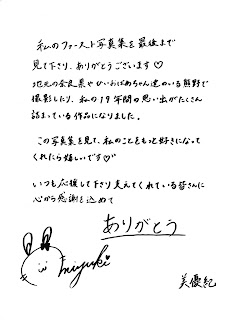 私のファースト写真集を最後まで
見て下さり、ありがとうございます♡
地元の奈良県やひいおばあちゃん達のいる熊野で
撮影したり、私の19年間の思い出がたくさん
詰まっている作品になりました。
この写真集を見て、私のことをもっと好きになって
くれたら嬉しいです♡
いつも応援して下さり支えてくれている皆さんに
心から感謝を込めて
ありがとう
miyuki
美優紀